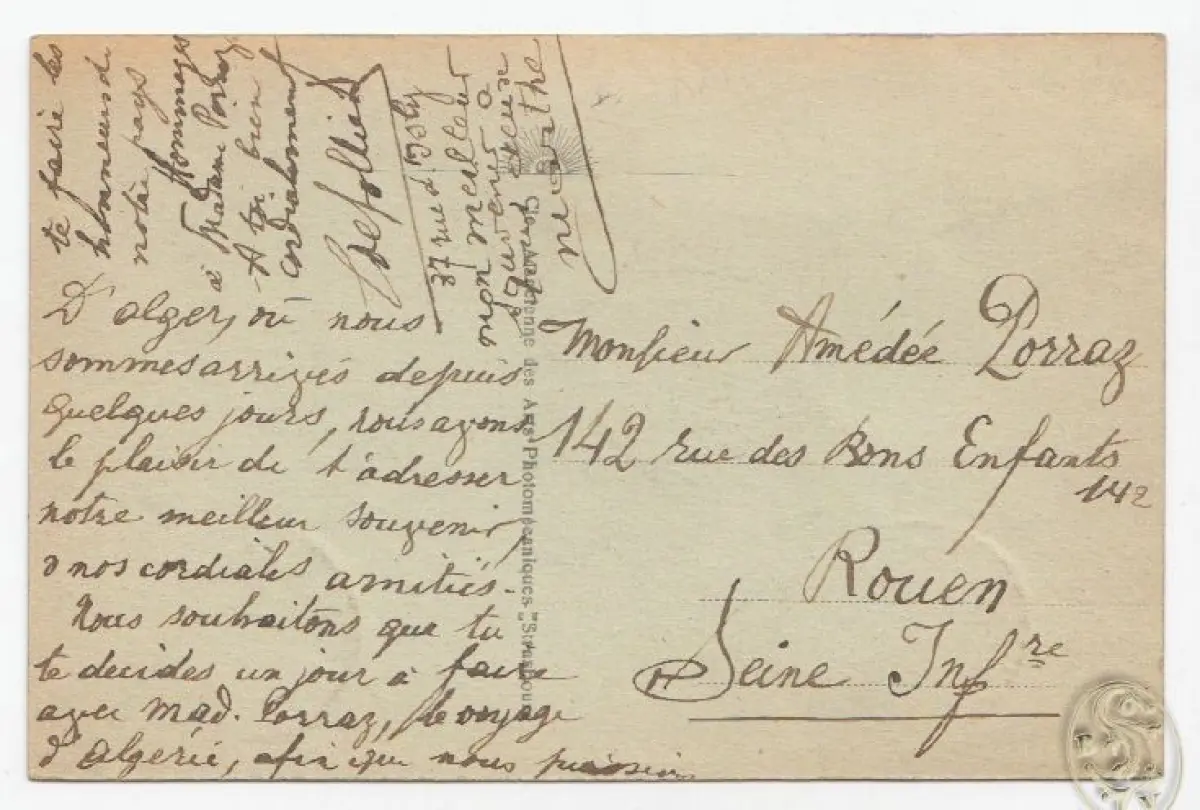 D'alger, où nous
sommes arrivés depuis
quelques jours, nous avons
le plaisir de t'adresser
notre meilleur souvenir
& nos cordiales amitiés.
Nous souhaitons que tu
te decides un jour à faire
avec Mad. Porraz, le voyage
d'Algérie, afin que nous puissions
te faire les
honneurs de
notre pays
Hommages
à Madame Porraz
A toi bien
cordialement
37 rue d'Isly
mon meilleur
souvenir à
Monsieur Amédée Porraz
142 rue des Bons Enfants
142
Rouen
Seine Infre
Cie Alsacienne des Arts Photomécaniques "Strasbourg"